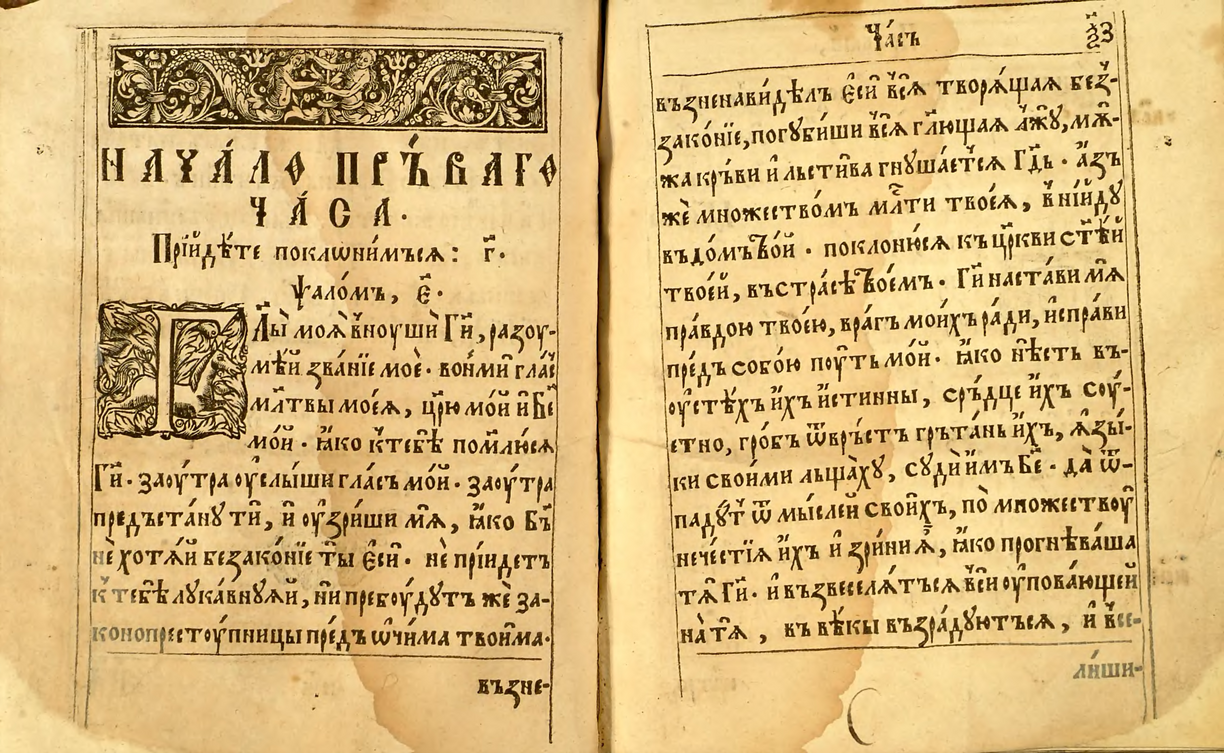 НАЧА́ЛО ПРЪ́ВАГО
ЧА́СА.
Прїйдѣ́те поклѡни́мъсѧ: г҃.
Ѱало́мъ, є҃.
Гл҃ы моѧ̀ внѹшѝ Гі҃и, разѹ-
мѣ́й зва́нїе моѐ. вонмѝ гла́с
мл҃твы моеѧ̀, цр҃ю мо́й и҆ Бж҃е
мо́й. ꙗ҆́ко к тебѣ̀ помлю́сѧ
Гі҃и. заѹ́тра ѹ҆слы́ши гла́съ мо́й. заѹ́тра
предъста́нꙋ тѝ, и҆ ѹ҆́зриши мѧ̀, ꙗ҆́ко Бъ҃
нѐ хотѧ́й безако́нїе ты̀ є҆сѝ. нѐ прїи́детъ
к тебѣ̀ лꙋка́внꙋѧй, нѝ пребѹ́дꙋтъ жѐ за-
конопрестѹ́пницы прⷣе́дъ ѡ҆чи́ма твои́ма.
възне-
Ча́съ
възненави́дѣлъ є҆сѝ всѧ̀ творѧ́щаѧ без-
зако́нїе, погꙋби́ши всѧ̀ гл҃ющаѧ лжꙋ̀, мѫ́-
жа кръ́ви и҆ льсти́ва гнꙋша́етсѧ Гдⷭ҇ь. а҆́зъ
жѐ мно́жеством́ъ млⷭ҇ти твоеѧ̀, вни́йдꙋ
въ до́мъ тво́й. поклоню́сѧ къ цр҃кви ст҃ѣ́й
твое́й, въ стра́сѣ твое́мъ. Гі҃и наста́ви мѧ̀
пра́вдою твое́ю, вра́гъ мои́хъ ра́ди, и҆спра́ви
прⷣе́дъ собо́ю пѹ́ть мо́й. ꙗ҆́ко нѣ́сть въ-
ѹ҆стѣ́хъ и҆́хъ и҆́стинны, срь́дце и҆́хъ сѹ́-
етно, гро́бъ ѿвръ́стъ гръта́нь и҆́хъ, ѧ҆зы́-
ки свои́ми льща́хꙋ, сꙋдѝ и҆̀мъ Бж҃е. да̀ ѿ-
падꙋ́т ѿ мы́слей свои́хъ, по̀ мно́жествѹ
нече́стїѧ и҆́хъ и҆ зрини ѧ҆̀, ꙗ҆́ко прогнѣ́ваша
тѧ̀ Гі҃и. и҆ възвеселѧ́тъсѧ всѝ ѹ҆пова́ющей
на̀ тѧ̀, въ вѣ́кы възра́дꙋютъсѧ, и҆ все-
ли́ши-